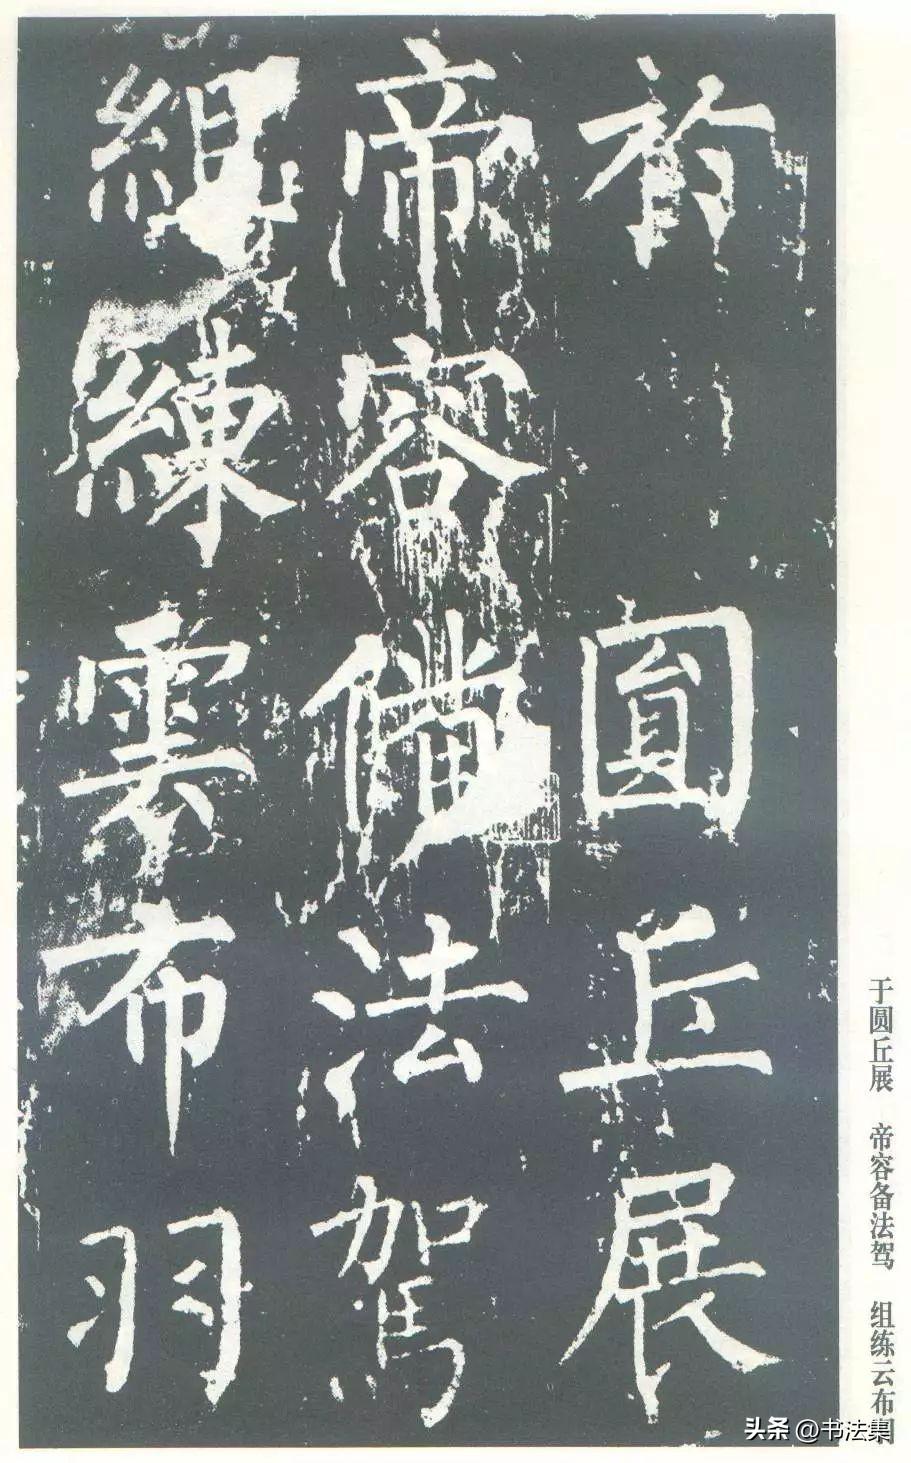 於圓丘展
帝容備法駕
組練雲布羽
于圆丘展 帝容备法驾 组练云布
头条 @书法集